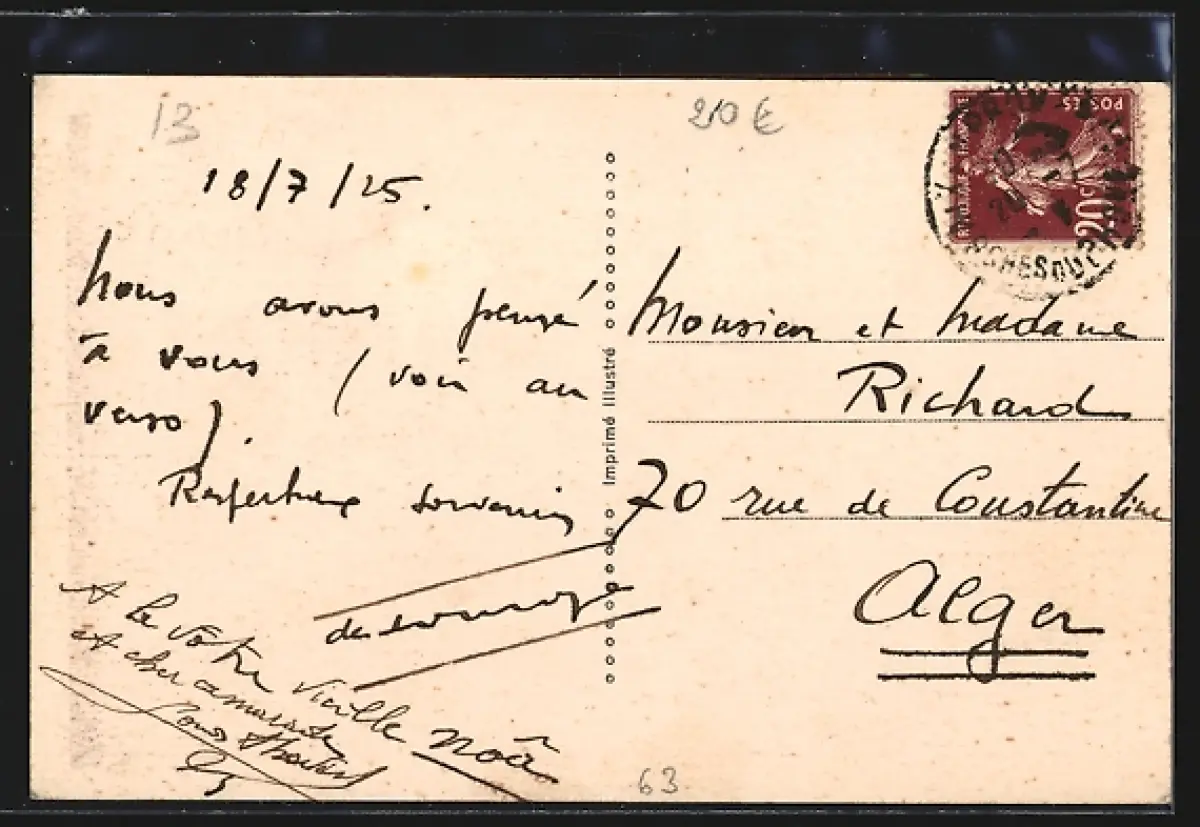 13
210 €
18/7/25.
Nous avons pensé
à vous (voir au
verso).
Respectueux souvenir
A la vôtre vieille Noâ
et cher
Imprimé illustré
POSTES
20c
Monsieur et Madame
Richard
70 rue de Constantine
Alger
63